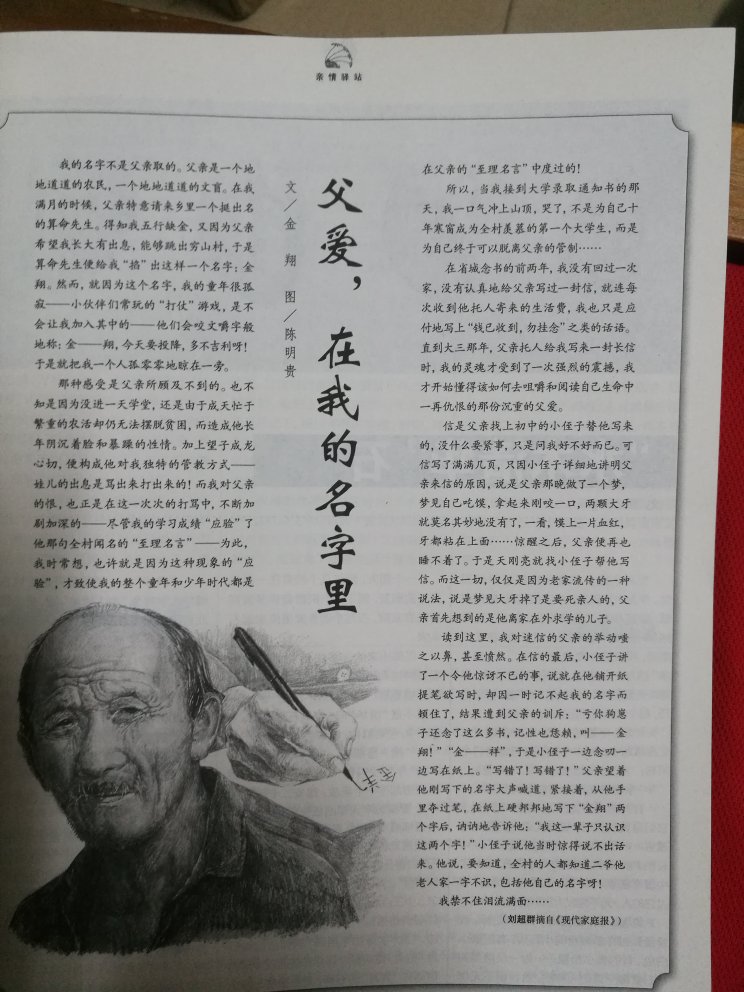 亲情驿站
父爱，在我的名字里
文／金 翔 图／陈明贵
我的名字不是父亲取的。父亲是一个地
地道道的农民，一个地地道道的文盲。在我
满月的时候，父亲特意请来乡里一个挺出名
的算命先生。得知我五行缺金，又因为父亲
希望我长大有出息，能够跳出穷山村，于是
算命先生便给我“掐”出这样一个名字：金
翔。然而，就因为这个名字，我的童年很孤
寂——小伙伴们常玩的“打仗”游戏，是不
会让我加入其中的——他们会咬文嚼字般
地称：金——翔，今天要投降，多不吉利呀！
于是就把我一个人孤零零地晾在一旁。
那种感受是父亲所顾及不到的。也不
知是因为没进一天学堂，还是由于成天忙于
繁重的农活却仍无法摆脱贫困，而造成他长
年阴沉着脸和暴躁的性情。加上望子成龙
心切，便构成他对我独特的管教方式——
娃儿的出息是骂出来打出来的！而我对父亲
的恨，也正是在这一次次的打骂中，不断加
剧加深的——尽管我的学习成绩“应验”了
他那句全村闻名的“至理名言”——为此，
我时常想，也许就是因为这种现象的“应
验”，才致使我的整个童年和少年时代都是
在父亲的“至理名言”中度过的！
所以，当我接到大学录取通知书的那
天，我一口气冲上山顶，哭了，不是为自己十
年寒窗成为全村羡慕的第一个大学生，而是
为自己终于可以脱离父亲的管制……
在省城念书的前两年，我没有回过一次
家，没有认真地给父亲写过一封信，就连每
次收到他托人寄来的生活费，我也只是应
付地写上“钱已收到，勿挂念”之类的话语。
直到大三那年，父亲托人给我写来一封长信
时，我的灵魂才受到了一次强烈的震撼，我
才开始懂得该如何去咀嚼和阅读自己生命中
一再仇恨的那份沉重的父爱。
信是父亲找上初中的小侄子替他写来
的，没什么要紧事，只是问我好不好而已。可
信写了满满几页，只因小侄子详细地讲明父
亲来信的原因，说是父亲那晚做了一个梦，
梦见自己吃馍，拿起来刚咬一口，两颗大牙
就莫名其妙地没有了，一看，馍上一片血红，
牙都粘在上面……惊醒之后，父亲便再也
睡不着了。于是天刚亮就找小侄子帮他写
信。而这一切，仅仅是因为老家流传的一种
说法，说是梦见大牙掉了是要死亲人的，父
亲首先想到的是他离家在外求学的儿子。
读到这里，我对迷信的父亲的举动嗤
之以鼻，甚至愤然。在信的最后，小侄子讲
了一个令他惊讶不已的事，说就在他铺开纸
提笔欲写时，却因一时记不起我的名字而
顿住了，结果遭到父亲的训斥：“亏你狗崽
子还念了这么多书，记性也恁赖，叫——金
翔！”“金——祥”，于是小侄子一边念叨一
边写在纸上。“写错了！写错了！”父亲望着
他刚写下的名字大声喊道，紧接着，从他手
里夺过笔，在纸上硬邦邦地写下“金翔”两
个字后，讷讷地告诉他：“我这一辈子只认识
这两个字！”小侄子说他当时惊得说不出话
来。他说，要知道，全村的人都知道二爷他
老人家一字不识，包括他自己的名字呀！
我禁不住泪流满面……
（刘超群摘自《现代家庭报》）